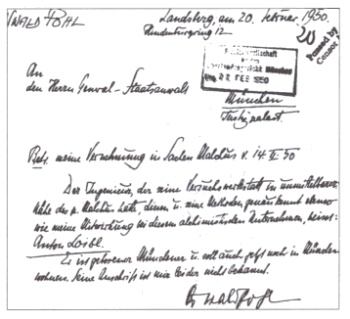 OSWALD POHL
Landsberg, am 20. Februar, 1950.
Hindenburgring 12
Passed by
Censor
20
An
den Herrn General-Staatsanwalt
22. FEB 1950
München
Justizpalast.
Betr. meine Vernehmung in Sachen Malchus v. 14. II. 50
Der Ingenieur, der eine Versuchswerkstatt in unmittelbarer
Nähe des p. Malchus hatte, diesen u. seine Methoden genau kannte ebenso
wie meine Mitwirkung bei diesem alchimistischen Unternehmen, heisst:
Anton Loibl.
Er ist geborener Münchener u. soll auch jetzt noch in München
wohnen. Seine Anschrift ist mir leider nicht bekannt.
Oswald Pohl